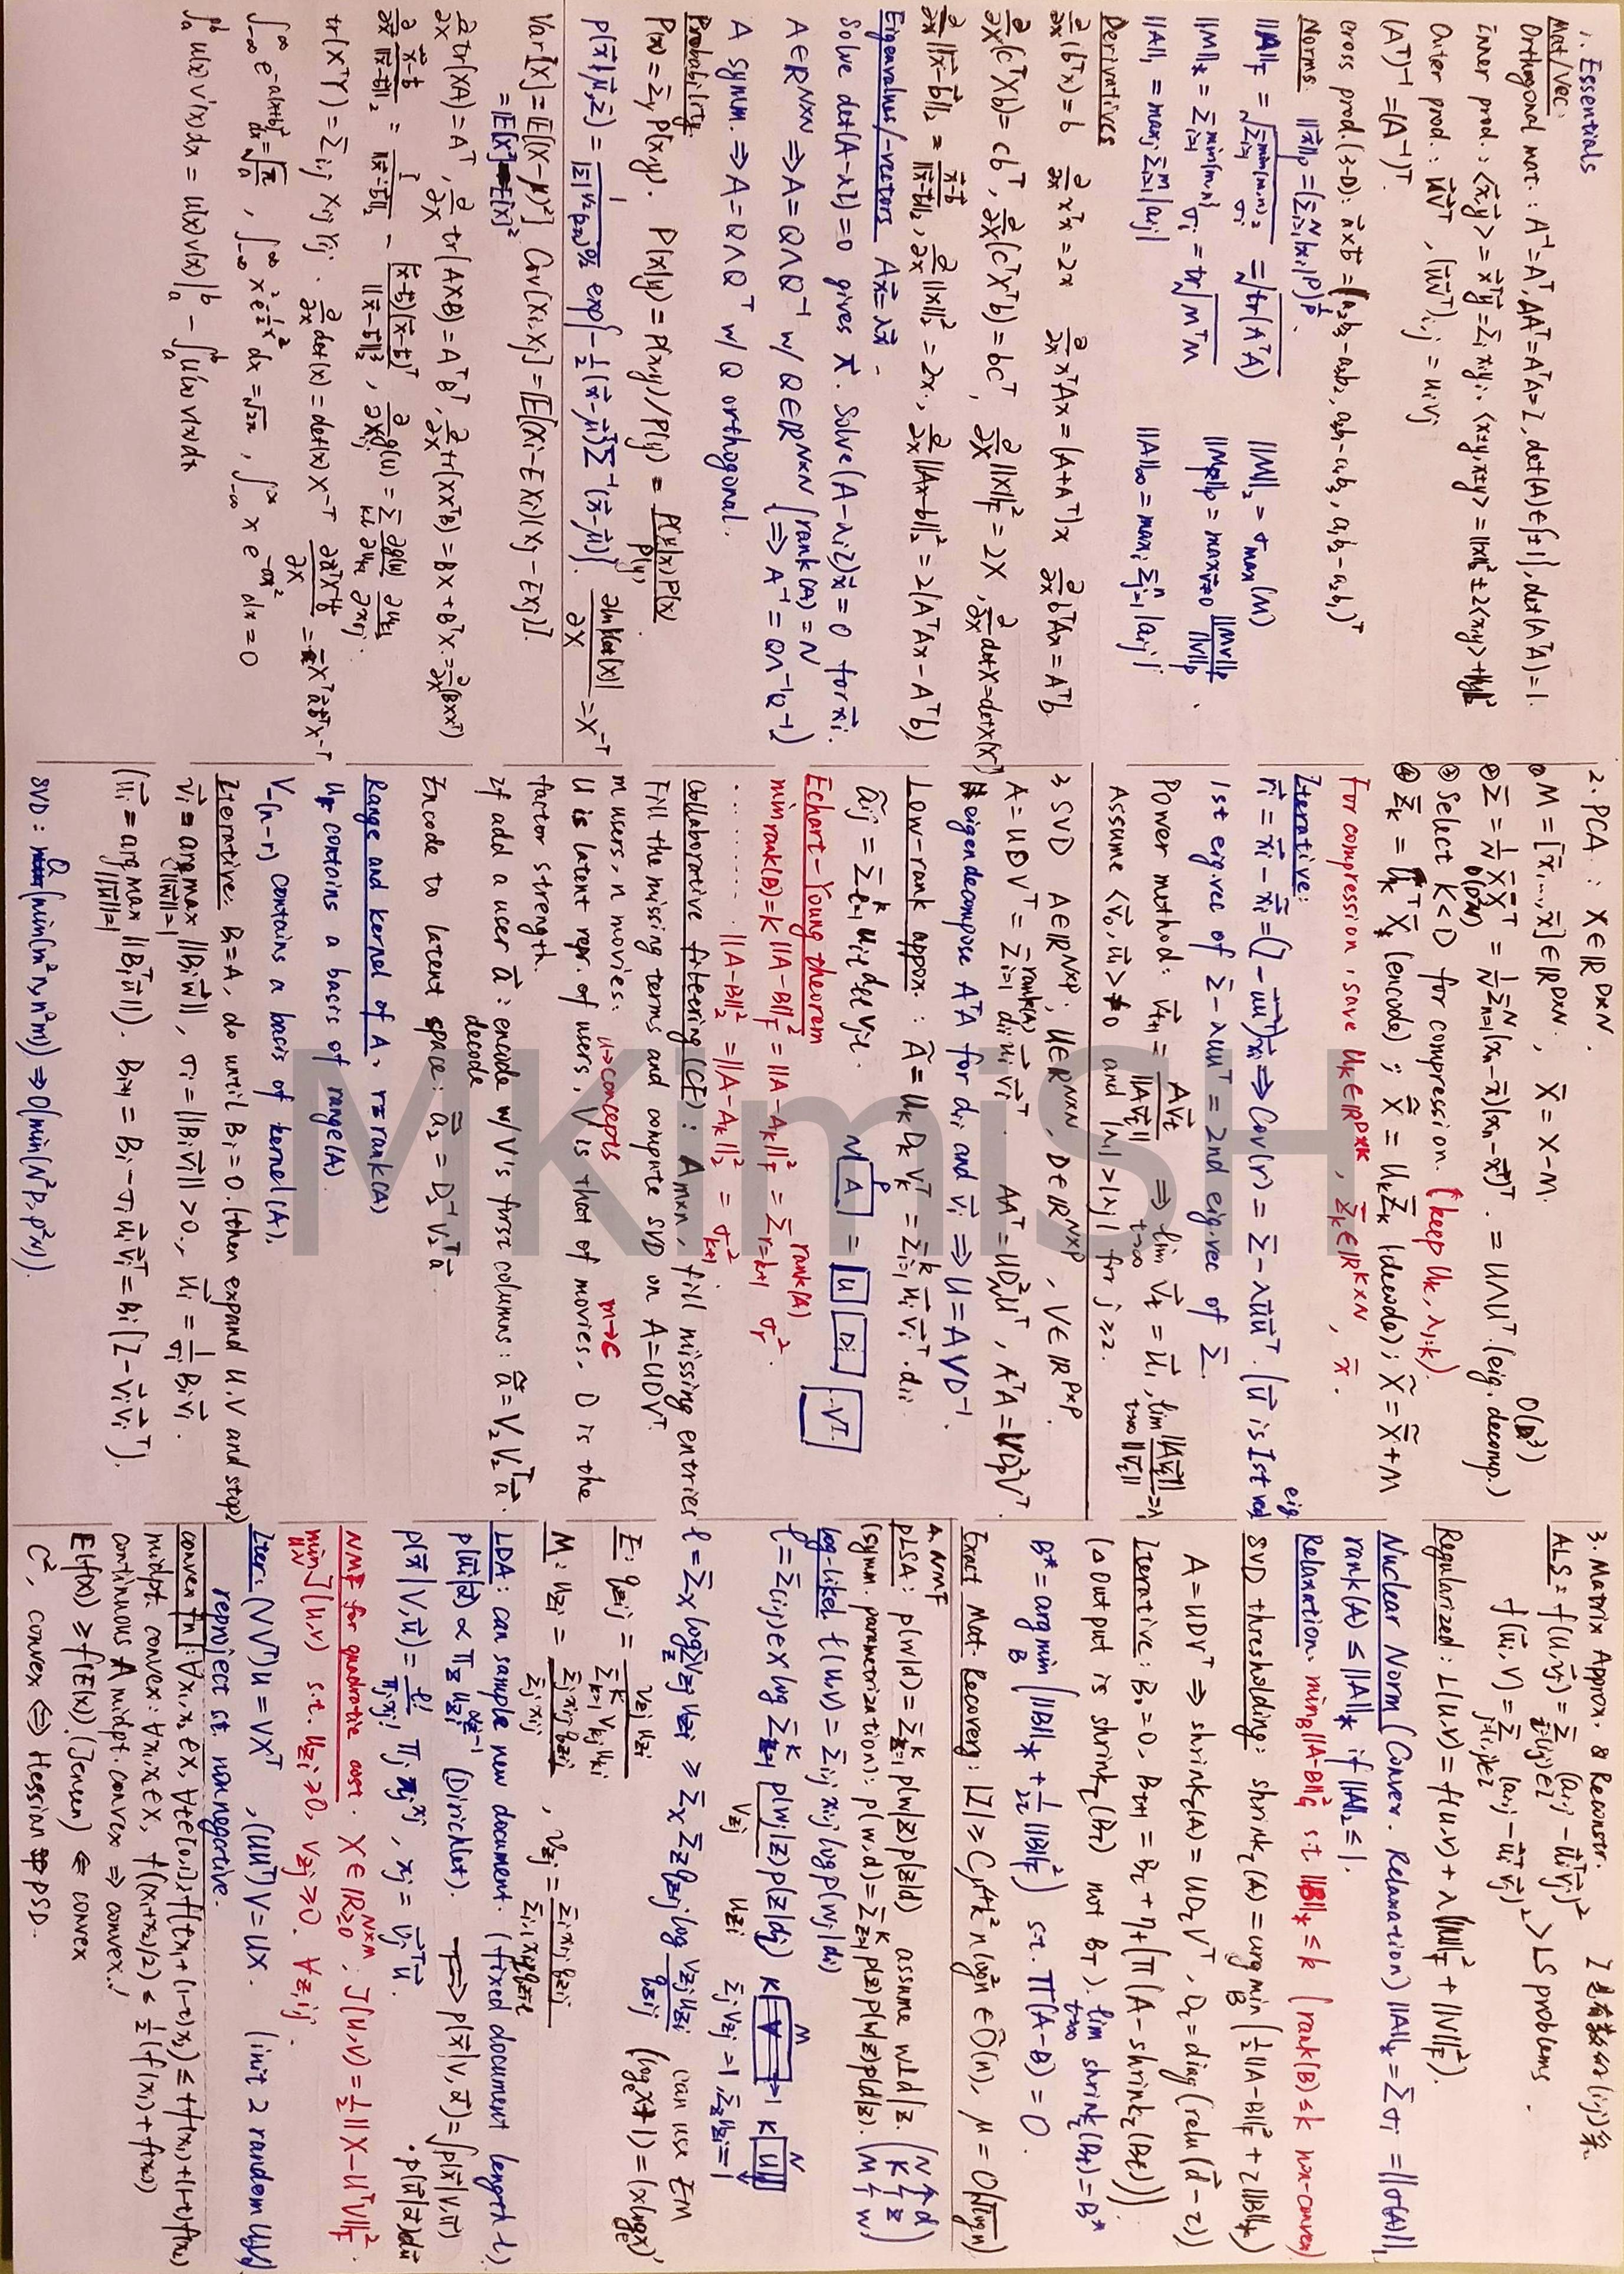 1. Essentials
Mat/Vec:
Orthogonal mat.: A⁻¹=Aᵀ, AAᵀ=AᵀA=I, det(A)∈{±1}, det(AᵀA)=1.
inner prod.: <x⃗,y⃗> = x⃗ᵀy⃗ = Σᵢ xᵢyᵢ. <x±y,x±y> = ||x||² ± 2<x,y> + ||y||²
Outer prod.: u⃗v⃗ᵀ, (u⃗v⃗ᵀ)ᵢ,ⱼ = uᵢvⱼ
(Aᵀ)⁻¹ = (A⁻¹)ᵀ.
cross prod.(3-D): a⃗×b⃗ = (a₂b₃-a₃b₂, a₃b₁-a₁b₃, a₁b₂-a₂b₁)ᵀ
Norms: ||x⃗||ₚ = (Σᵢ₌₁ᴺ |xᵢ|ᵖ)^(1/p).
||A||F = √(Σᵢ₌₁^min(m,n) σᵢ²) = √tr(AᵀA) ||M||₂ = σmax(M)
||M||⋆ = Σᵢ₌₁^min(m,n) σᵢ = tr√(MᵀM) ||M||p = max v≠0 ||Mv||p/||v||p.
||A||₁ = maxⱼ Σᵢ₌₁ᵐ |aᵢⱼ| ||A||∞ = maxᵢ Σⱼ₌₁ⁿ |aᵢⱼ|
Derivatives
∂/∂x(bᵀx)=b ∂/∂x xᵀx=2x ∂/∂x xᵀAx=(A+Aᵀ)x ∂/∂x bᵀAx=Aᵀb
∂/∂X(cᵀXb)=cbᵀ, ∂/∂X(cᵀXᵀb)=bcᵀ, ∂/∂X||X||F²=2X, ∂/∂X detX=detX(X⁻ᵀ)
∂/∂x||x⃗-b⃗||₂ = (x⃗-b⃗)/||x⃗-b⃗||₂, ∂/∂x||x||₂²=2x, ∂/∂x||Ax-b||₂²=2(AᵀAx-Aᵀb)
Eigenvalues/-vectors Ax⃗=λx⃗.
Solve det(A-λI)=0 gives λ. Solve (A-λᵢI)x⃗=0 for x⃗ᵢ.
A∈ℝᴺˣᴺ ⇒ A=QΛQ⁻¹ w/ Q∈ℝᴺˣᴺ (rank(A)=N ⇒ A⁻¹=QΛ⁻¹Q⁻¹)
A symm. ⇒ A=QΛQᵀ w/ Q orthogonal.
Probability.
P(x)=Σy P(x,y). P(x|y)=P(x,y)/P(y) = P(y|x)P(x)/P(y)
p(x⃗|μ⃗,Σ) = 1/(|Σ|^½(2π)^(D/2)) exp{-½(x⃗-μ⃗)ᵀΣ⁻¹(x⃗-μ⃗)}. ∂ln|det(X)|/∂X = X⁻ᵀ
Var[X]=E[(X-μ)²] Cov[Xᵢ,Xⱼ]=E[(Xᵢ-EXᵢ)(Xⱼ-EXⱼ)].
=E[X²]-E[X]²
∂/∂X tr(XA)=Aᵀ, ∂/∂X tr(AXB)=AᵀBᵀ, ∂/∂X tr(XXᵀB)=BX+BᵀX = ∂/∂X(BXXᵀ)
∂/∂x⃗ (x⃗-b⃗)/||x⃗-b⃗||₂ = I/||x⃗-b⃗||₂ - (x⃗-b⃗)(x⃗-b⃗)ᵀ/||x⃗-b⃗||₂³, ∂/∂Xᵢⱼ g(U) = Σ ∂g(U)/∂uₖₗ ∂uₖₗ/∂xᵢⱼ.
tr(XᵀY)=Σᵢⱼ XᵢⱼYᵢⱼ. ∂/∂X det(X)=det(X)X⁻ᵀ ∂a⃗ᵀX⁻¹b⃗/∂X = -X⁻ᵀa⃗b⃗ᵀX⁻ᵀ
∫₋∞^∞ e^(-a(x+b)²)dx=√(π/a), ∫₋∞^∞ x²e^(-½x²)dx=√2π, ∫₋∞^∞ x e^(-ax²)dx=0
∫ₐᵇ u(x)v'(x)dx = u(x)v(x)|ₐᵇ - ∫ₐᵇ u'(x)v(x)dx
2. PCA: X∈ℝᴰˣᴺ.
① M=[x̄,...,x̄]∈ℝᴰˣᴺ, X̄=X-M.
② Σ = 1/N X̄X̄ᵀ = 1/N Σₙ₌₁ᴺ(xₙ-x̄)(xₙ-x̄)ᵀ. = UΛUᵀ.(eig. decomp.) O(D³)
O(D²N)
③ Select K<D for compression. (keep Uₖ, λ₁:ₖ).
④ Z̄ₖ = UₖᵀX̄ (encode); X̄̃ = UₖZ̄ₖ (decode); X̃ = X̄̃+M
For compression, save Uₖ∈ℝᴰˣᴷ, Z̄ₖ∈ℝᴷˣᴺ, x̄.
Iterative:
r⃗ᵢ = x⃗ᵢ - x̃ᵢ = (I-u⃗u⃗ᵀ)x⃗ᵢ ⇒ Cov(r) = Σ - λu⃗u⃗ᵀ. (u⃗ is 1st eig. vec)
1st eig.vec of Σ-λuuᵀ = 2nd eig.vec of Σ.
Power method: v⃗ₜ₊₁ = Av⃗ₜ/||Av⃗ₜ|| ⇒ lim t→∞ v⃗ₜ = u⃗₁, lim t→∞ ||Av⃗ₜ||/||v⃗ₜ|| = λ₁
Assume <v⃗₀,u⃗₁> ≠ 0 and |λ₁|>|λⱼ| for j≥2.
3 SVD A∈ℝᴺˣᴾ, U∈ℝᴺˣᴺ, D∈ℝᴺˣᴾ, V∈ℝᴾˣᴾ
A=UDVᵀ = Σᵢ₌₁^rank(A) dᵢᵢu⃗ᵢv⃗ᵢᵀ. AAᵀ=UD²Uᵀ, AᵀA=VD²Vᵀ.
eigendecompose AᵀA for dᵢᵢ and v⃗ᵢ ⇒ U=AVD⁻¹.
Low-rank approx.: Ã = UₖDₖVₖᵀ = Σᵢ₌₁ᵏ u⃗ᵢv⃗ᵢᵀ.dᵢᵢ
N A P = U D Vᵀ
Echart-Young theorem
min rank(B)=K ||A-B||F² = ||A-Aₖ||F² = Σr=k+1^rank(A) σᵣ².
........ ||A-B||₂² = ||A-Aₖ||₂² = σₖ₊₁².
Collaborative filtering (CF): Aₘₓₙ, fill missing entries
Fill the missing terms and compute SVD on A=UDVᵀ.
m users, n movies: u→concepts m→c
U is latent repr. of users, V is that of movies, D is the
factor strength.
If add a user a⃗: encode w/ V's first columns: ã = V₂V₂ᵀa⃗.
decode
Encode to latent space: a⃗₂ = D₂⁻¹V₂ᵀa⃗
Range and kernel of A, r=rank(A)
Uᵣ contains a basis of range(A).
V₋(n-r) contains a basis of kernel(A).
Iterative. B₁=A, do until Bᵢ=0.(then expand U,V and stop)
v⃗ᵢ = argmax ||w⃗||=1 ||Bᵢw⃗||, σᵢ=||Bᵢv⃗ᵢ||>0., u⃗ᵢ = 1/σᵢ Bᵢv⃗ᵢ.
(u⃗ᵢ = argmax ||u⃗||=1 ||Bᵢᵀu⃗||). Bᵢ₊₁ = Bᵢ-σᵢu⃗ᵢv⃗ᵢᵀ = Bᵢ(I-v⃗ᵢv⃗ᵢᵀ).
SVD: O(min(m²n, n²m)) ⇒ O(min(N²P, P²N)).
3. Matrix Approx. & Reconstr. I 是有数的(i,j)系.
ALS: f(U,v⃗ⱼ) = Σ(i,j)∈I (aᵢⱼ-u⃗ᵢᵀv⃗ⱼ)²
f(u⃗ᵢ,V) = Σj:(i,j)∈I (aᵢⱼ-u⃗ᵢᵀv⃗ⱼ)² > LS problems.
Regularized: L(U,V) = f(U,V) + λ(||U||F² + ||V||F²).
Nuclear Norm (Convex. Relaxation) ||A||⋆ = Σσᵢ = ||σ(A)||₁
rank(A) ≤ ||A||⋆ if ||A||₂ ≤ 1.
Relaxation. min B ||A-B||G² s.t. ||B||⋆ ≤ k (rank(B)≤k non-convex)
SVD thresholding: shrinkτ(A) = argmin B (½||A-B||F² + τ||B||⋆)
A=UDVᵀ ⇒ shrinkτ(A) = UDτVᵀ, Dτ=diag(relu(d⃗-τ))
Iterative: B₀=0, Bₜ₊₁ = Bₜ + ηₜ(Π(A-shrinkτ(Bₜ)))
(△ output is shrinkτ(BT) not BT). lim t→∞ shrinkτ(Bt)=B*
B*=argmin B (||B||⋆ + 1/2τ ||B||F²) s.t. Π(A-B)=0.
Exact Mat. Recovery: |I| ≥ Cμ⁴k²n(log²n ∈ Õ(n), μ=O(√log n)
4. NMF
pLSA: p(w|d) = Σz=1ᴷ p(w|z)p(z|d) assume w⊥d|z.
(symm. parametrization): p(w,d) = Σz=1ᴷ p(z)p(w|z)p(d|z).
log-likel ℓ(U,V) = Σᵢ,ⱼ xᵢⱼ log p(wⱼ|dᵢ)
ℓ = Σ(i,j)∈X log Σz=1ᴷ p(wⱼ|z)p(z|dᵢ) K V M K U N
vzj uzi Σⱼ vzj = 1, Σz uzi = 1
ℓ = Σx logΣz vzj uzi ≥ Σx Σz qzij log vzj uzi/qzij can use EM
E: qzij = vzj uzi/Σk=1ᴷ vkj uki
M: uzi = Σⱼ xij qzij/Σⱼ xij, vzj = Σᵢ xij qzij/Σi,l xil qzil
LDA: can sample new document. (fixed document length ℓ)
p(u⃗ᵢ|α⃗) ∝ Πz uzi^(αz-1) (Dirichlet). ⇒ p(x⃗|V,α⃗) = ∫p(x⃗|V,u⃗)
p(x⃗|V,u⃗) = ℓ!/Πⱼxⱼ! Πⱼ πⱼ^xⱼ, πⱼ = v⃗ⱼᵀu⃗. ·p(u⃗|α⃗)du⃗
NMF for quadratic cost. X∈ℝ≥0ᴺˣᴹ: J(U,V) = ½||X-UᵀV||F².
min U,V J(U,V) s.t. uzi≥0, vzj≥0. ∀z,i,j.
Iter: (VVᵀ)U=VXᵀ, (UUᵀ)V=UX. (init 2 random U,V)
reproject st. nonnegative.
convex fn: ∀x₁,x₂∈X, ∀t∈[0,1], f(tx₁+(1-t)x₂) ≤ tf(x₁)+(1-t)f(x₂)
midpt. convex: ∀x₁,x₂∈X, f((x₁+x₂)/2) ≤ ½(f(x₁)+f(x₂))
continuous ∧ midpt. convex ⇒ convex.
E(f(x)) ≥ f(E(x)).(Jensen) ⇐ convex
C², convex ⇔ Hessian PSD.
MKimiSH